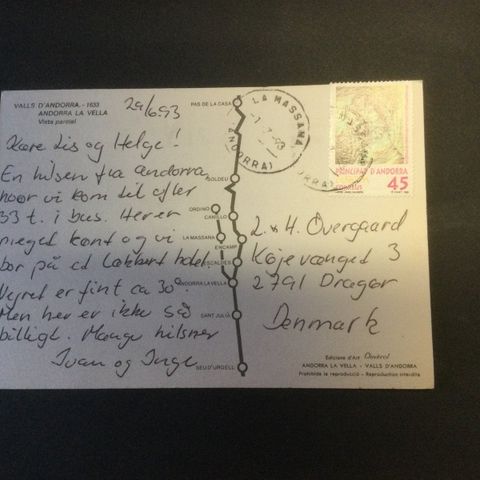 VALLS D'ANDORRA - 1633
ANDORRA LA VELLA
Vista parcial
29/6.93
Kære Lis og Helge!
En hilsen fra Andorra,
hvor vi kom til efter
33 t. i bus. Her er
meget kønt og vi
bor på et lækkert hotel.
Vejret er fint ca 30°.
Men her er ikke så
billigt. Mange hilsner
Ivan og Inge
PAS DE LA CASA
SOLDEU
ORDINO
CANILLO
LA MASSANA
ENCAMP
ESCALDES
ANDORRA LA VELLA
SANT JULIÀ
SEU D'URGELL
LA MASSANA
ANDORRA
PRINCIPAT D'ANDORRA
CORREUS
45
L. & H. Overgaard
Køjevænget 3
2791 Dragør
Denmark
Edicions d'Art
ANDORRA LA VELLA - VALLS D'ANDORRA
Prohibida la reproducció - Reproduction interdite